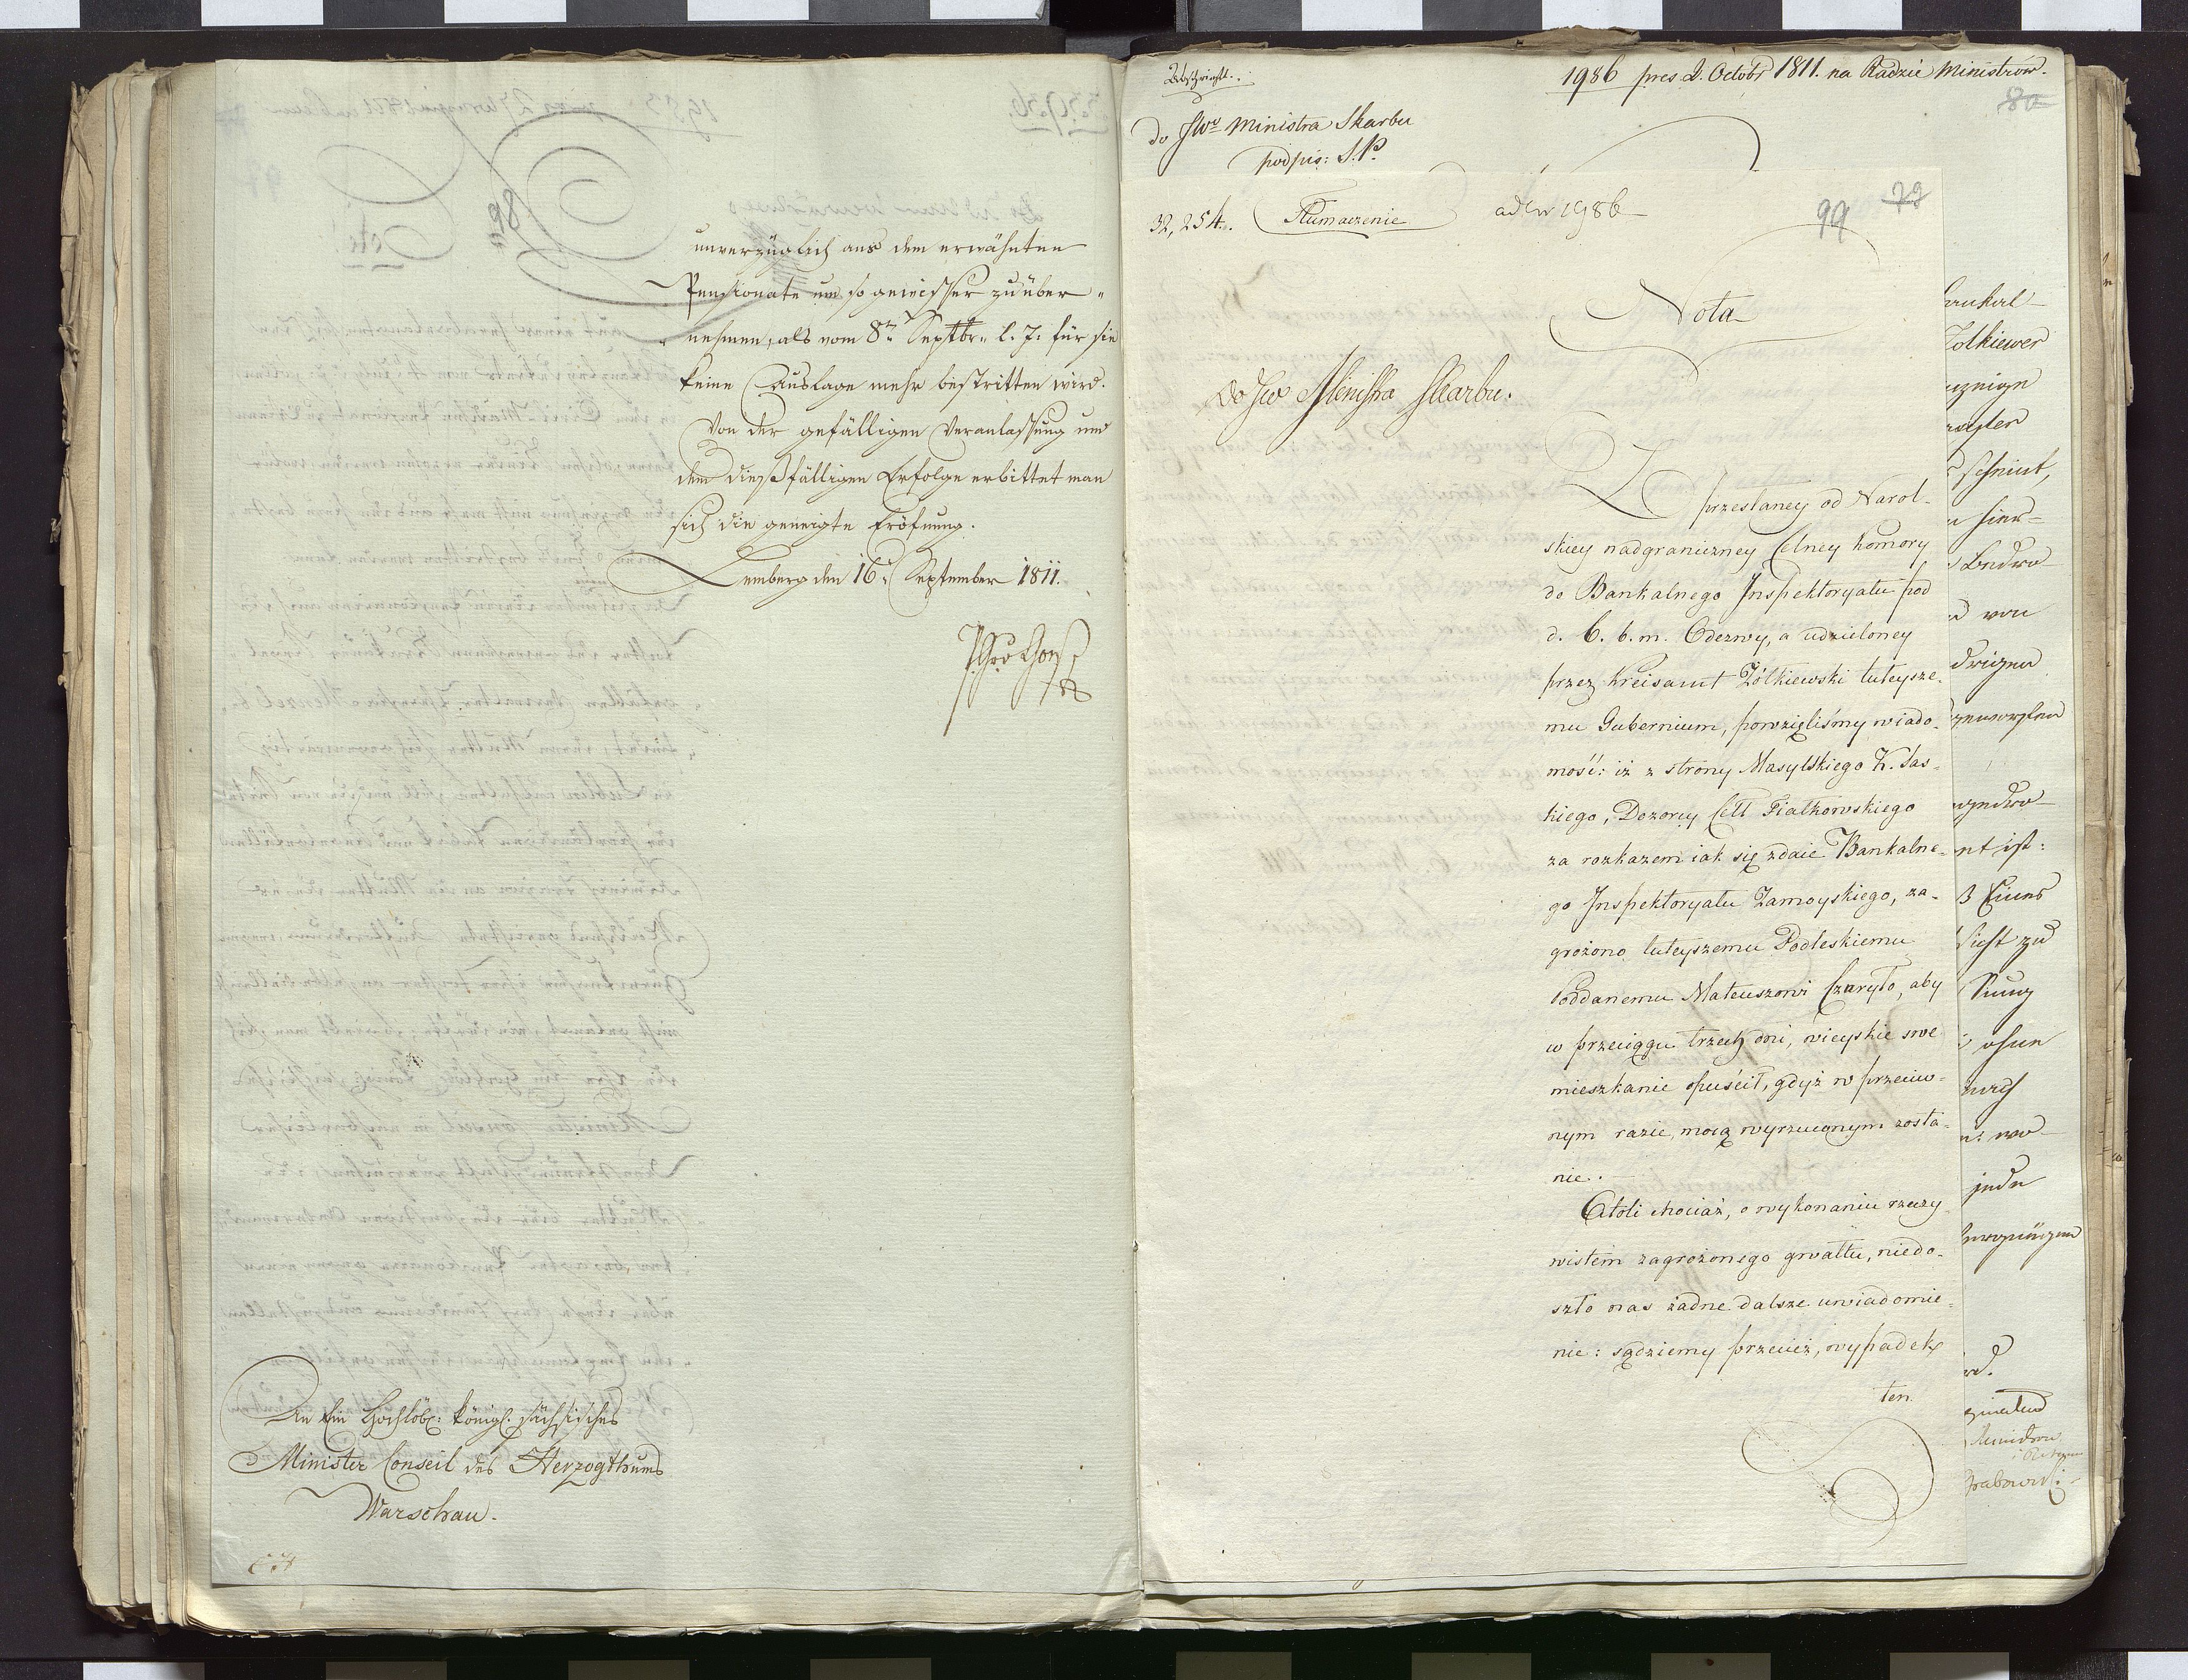 98
unverzüglich aus dem erwähnten
Pensionate um so gewisser zu über„
„nehmen, als vom 8ten Septbr. l. J. für sie
keine Auslage mehr bestritten wird.
Von der gefälligen Veranlassung und
dem dießfälligen Erfolge erbittet man
sich die geneigte Eröfnung.
Lemberg den 16. September 1811.
An Ein Hochlöb: königl. sächsisches
Minister Conseil des Herzogthums
Warschau.
1986 pres 2. Octobr 1811. na Radzie Ministrów.
80
do JWo Ministra Skarbu
podpis: S. P.
32,254. Tłumaczenie ad Nr 1986
99 79
Nota
Do JW Ministra Skarbu.
Z przesłaney od Narol-
skiey nadgraniczney Celney komory
do Bankalnego Inspektoryatu pod
d. 6. b. m. Odezwy, a udzieloney
przez Kreisamt Żółkiewski tuteysze-
mu Gubernium, powzięliśmy wiado-
mość: iż z strony Masylskiego K. Las-
kiego, Dozorcy Cełł Fiałkowskiego
za rozkazem iak się zdaie Bankalne-
go Inspektoryatu Zamoyskiego, za-
grożono tuteyszemu Podleskiemu
Poddanemu Mateuszowi Czuryło, aby
w przeciągu trzech dni, wieyskie swe
mieszkanie opuścił, gdyż w przeciw-
nym razie, mocą wyrzuconym zosta-
nie.
Atoli chociaż, o wykonaniu rzeczy-
wistem zagrożonego gwałtu, niedo-
szło nas żadne dalsze uwiadomie-
nie: sądziemy przecież, wypadek
ten